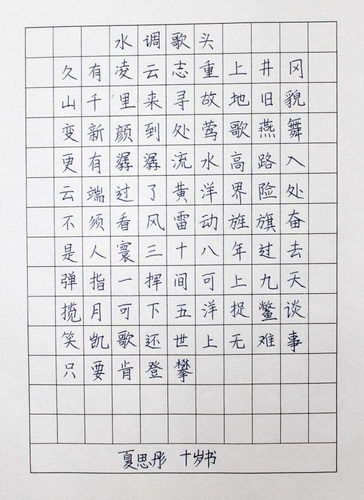 水调歌头
久有凌云志重上井冈
山千里来寻故地旧貌
变新颜到处莺歌燕舞
更有潺潺流水高路入
云端过了黄洋界险处
不须看风雷动旌旗奋
是人寰三十八年过去
弹指一挥间可上九天
揽月可下五洋捉鳖谈
笑凯歌还世上无难事
只要肯登攀
夏思彤 十岁书